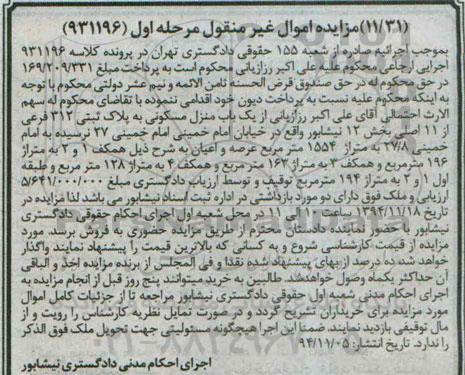 (۱۱/۳۱)مزایده اموال غیر منقول مرحله اول (۹۳۱۱۹۶)
بموجب اجرائیه صادره از شعبه ۱۵۵ حقوقی دادگستری تهران در پرونده کلاسه ۹۳۱۱۹۶
اجرایی ارجاعی محکوم علیه علی اکبر رزازیانی محکوم است به پرداخت مبلغ ۱۶۹/۲۰۹/۳۳۱
در حق محکوم له در حق صندوق قرض الحسنه ثامن الائمه و نیم عشر دولتی محکوم با توجه
به اینکه محکوم علیه نسبت به پرداخت دیون خود اقدامی ننموده با تقاضای محکوم له سهم
الارث احتمالی آقای علی اکبر رزازیانی از یک باب منزل مسکونی به پلاک ثبتی ۳۱۲ فرعی
از ۱۱ اصلی بخش ۱۲ نیشابور واقع در خیابان امام خمینی امام خمینی ۲۷ نرسیده به امام
خمینی ۲۷/۸ به متراژ ۱۵۵۴ متر مربع عرصه و اعیان به شرح ذیل همکف ۱ و ۲ به متراژ
۱۹۶ مترمربع و همکف ۳ به متراژ ۱۶۳ متر مربع و همکف ۴ به متراژ ۱۲۸ متر مربع و طبقه
اول ۱ و ۲ به متراژ ۱۹۴ مترمربع توقیف و توسط ارزیاب دادگستری مبلغ ۵/۶۴۱/۰۰۰/۰۰۰
ارزیابی و ملک فوق دارای دو مورد بازداشتی در اداره ثبت اسناد نیشابور می باشد لذا مزایده در
تاریخ ۱۳۹۴/۱۱/۱۸ ساعت ۱۰ الی ۱۱ در محل شعبه اول اجرای احکام حقوقی دادگستری
نیشابور با حضور نماینده دادستان محترم از طریق مزایده حضوری به فروش برسد. مورد
مزایده از قیمت کارشناسی شروع و به کسانی که بالاترین قیمت را پیشنهاد نمایند واگذار
خواهد شد ده درصد از بهای پیشنهاد شده نقدا و فی المجلس از برنده مزایده اخذ و الباقی
آن حداکثر یکماه وصول خواهد شد. طالبین به خرید میتوانند پنج روز قبل از انجام مزایده به
اجرای احکام مدنی شعبه اول حقوقی دادگستری نیشابور مراجعه تا از جزئیات کامل اموال
مورد مزایده برای خریداران تشریح گردد و در صورت تمایل نظریه کارشناس را رویت و از
مال توقیفی بازدید نمایند. ضمنا این اجرا هیچگونه مسئولیتی جهت تحویل ملک فوق الذکر
را ندارد. تاریخ انتشار: ۹۴/۱۱/۰۵
اجرای احکام مدنی دادگستری نیشابور